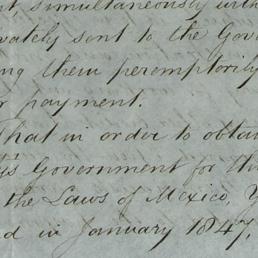 simultaneously with
vately sent to the Gov
ng them peremptorily
r payment.
That in order to obtai
's Government for th
the Laws of Mexico,
d in January 1847,